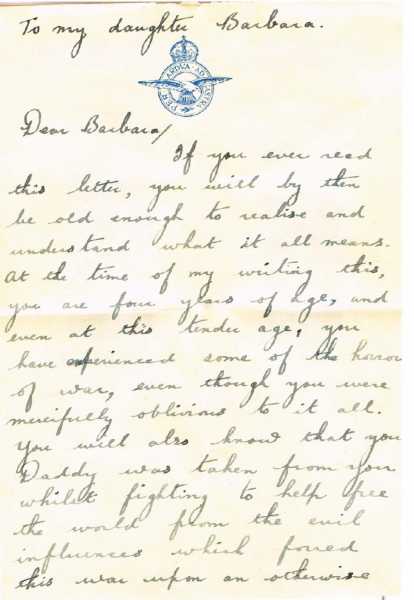 To my daughter Barbara.
PER ARDUA AD ASTRA
Dear Barbara/
If you ever read
this letter, you will by then
be old enough to realise and
understand what it all means.
At the time of my writing this,
you are four years of age, and
even at this tender age, you
have experienced some of the horror
of war, even though you were
mercifully oblivious to it all.
You will also know that you
Daddy was taken from you
whilst fighting to help free
the world from the evil
influences which forced
this war upon an otherwise